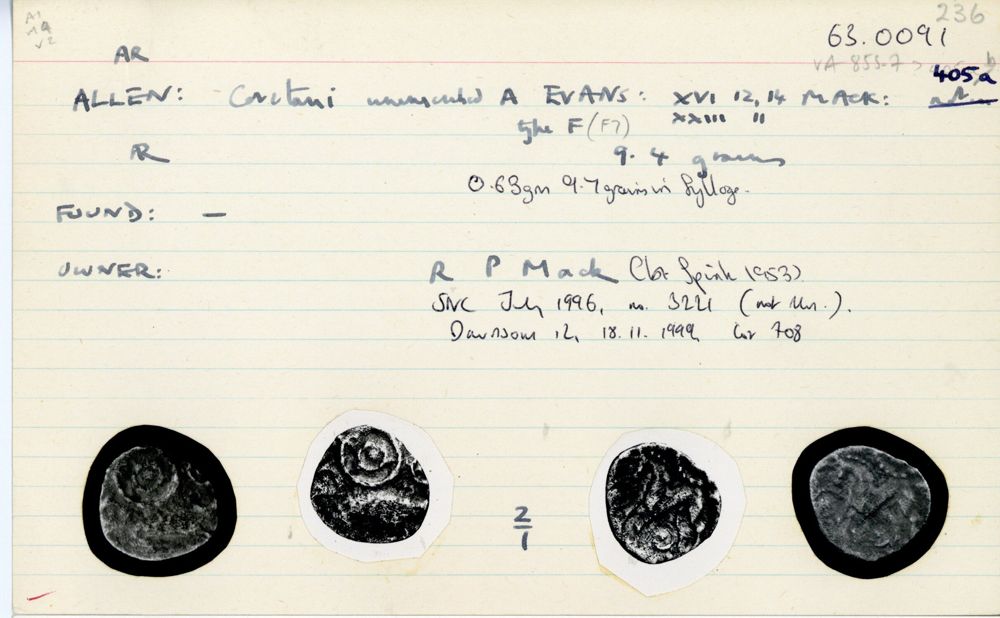 236
63.0091
AR
VA 855-7 >
405a
ALLEN: Coritani uninscribed A EVANS: XVI 12, 14 MACK:
type F (F7) XXIII 11
AR 9.4 grains
0.63gm 9.7 grains in Sylloge.
FOUND: —
OWNER: R P Mack (bt Spink 1953)
SNC July 1996, no. 3221 (not illus.).
Davissons 12, 18.11.1999, lot 708
2/1